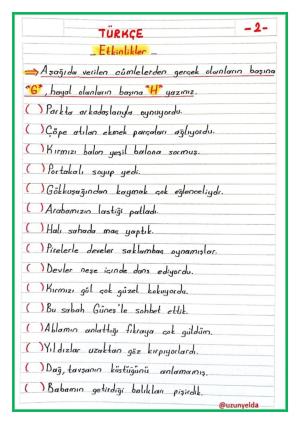 TÜRKÇE
-2-
Etkinlikler
Aşağıda verilen cümlelerden gerçek olanların başına
"G", hayal olanların başına "H" yazınız.
( ) Parkta arkadaşlarıyla oynuyordu.
( ) Çöpe atılan ekmek parçaları ağlıyordu.
( ) Kırmızı balon yeşil balona sormuş.
( ) Portakalı soyup yedi.
( ) Gökkuşağından kaymak çok eğlenceliydi.
( ) Arabamızın lastiği patladı.
( ) Halı sahada maç yaptık.
( ) Pirelerle develer saklambaç oynamışlar.
( ) Devler neşe içinde dans ediyordu.
( ) Kırmızı gül çok güzel kokuyordu.
( ) Bu sabah Güneş'le sohbet ettik.
( ) Ablamın anlattığı fıkraya çok güldüm.
( ) Yıldızlar uzaktan göz kırpıyorlardı.
( ) Dağ, tavşanın küstüğünü anlamamış.
( ) Babamın getirdiği balıkları pişirdik.
@uzunyelda